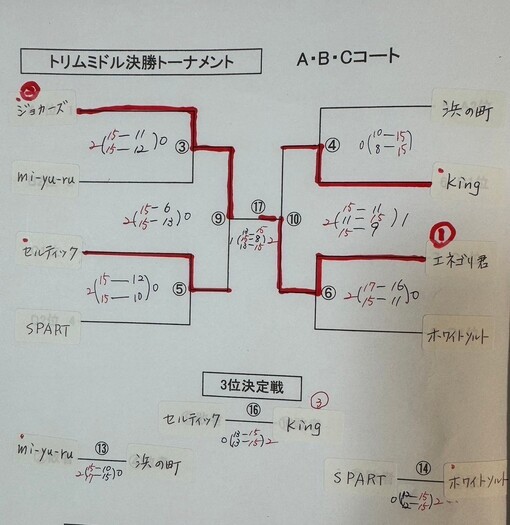 トリムミドル決勝トーナメント
A・B・Cコート
②
ジョカーズ
浜の町
2(15-11 15-12)0
③
④
0(10-15 8-15)
mi-yu-ru
King
2(15-6 15-13)0
⑨
⑰
⑩
2(15-11 11-15 15-9)1
①
セルティック
エネゴリ君
2(15-12 15-10)0
⑤
⑥
2(17-16 15-11)0
SPART
ホワイトソルト
3位決定戦
セルティック
⑯
King
③
0(13-15 13-15)2
mi-yu-ru
⑬
浜の町
2(15-10 17-15)0
SPART
⑭
ホワイトソルト
0(12-15 12-15)2